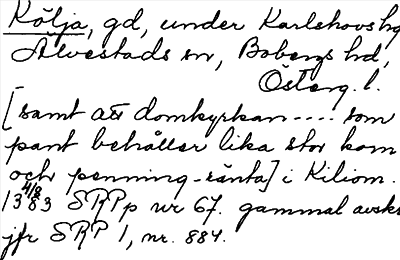 Kölja, gd, under Karlshovs hg
Alvestads sn, Bobergs hd,
Österg. l.
[samt att domkyrkan---- som
pant behåller lika stor korn
och penning-ränta] i Kiliom.
1383 4/8 SRPp nr 67. gammal avskr
jfr SRP 1, nr. 884.